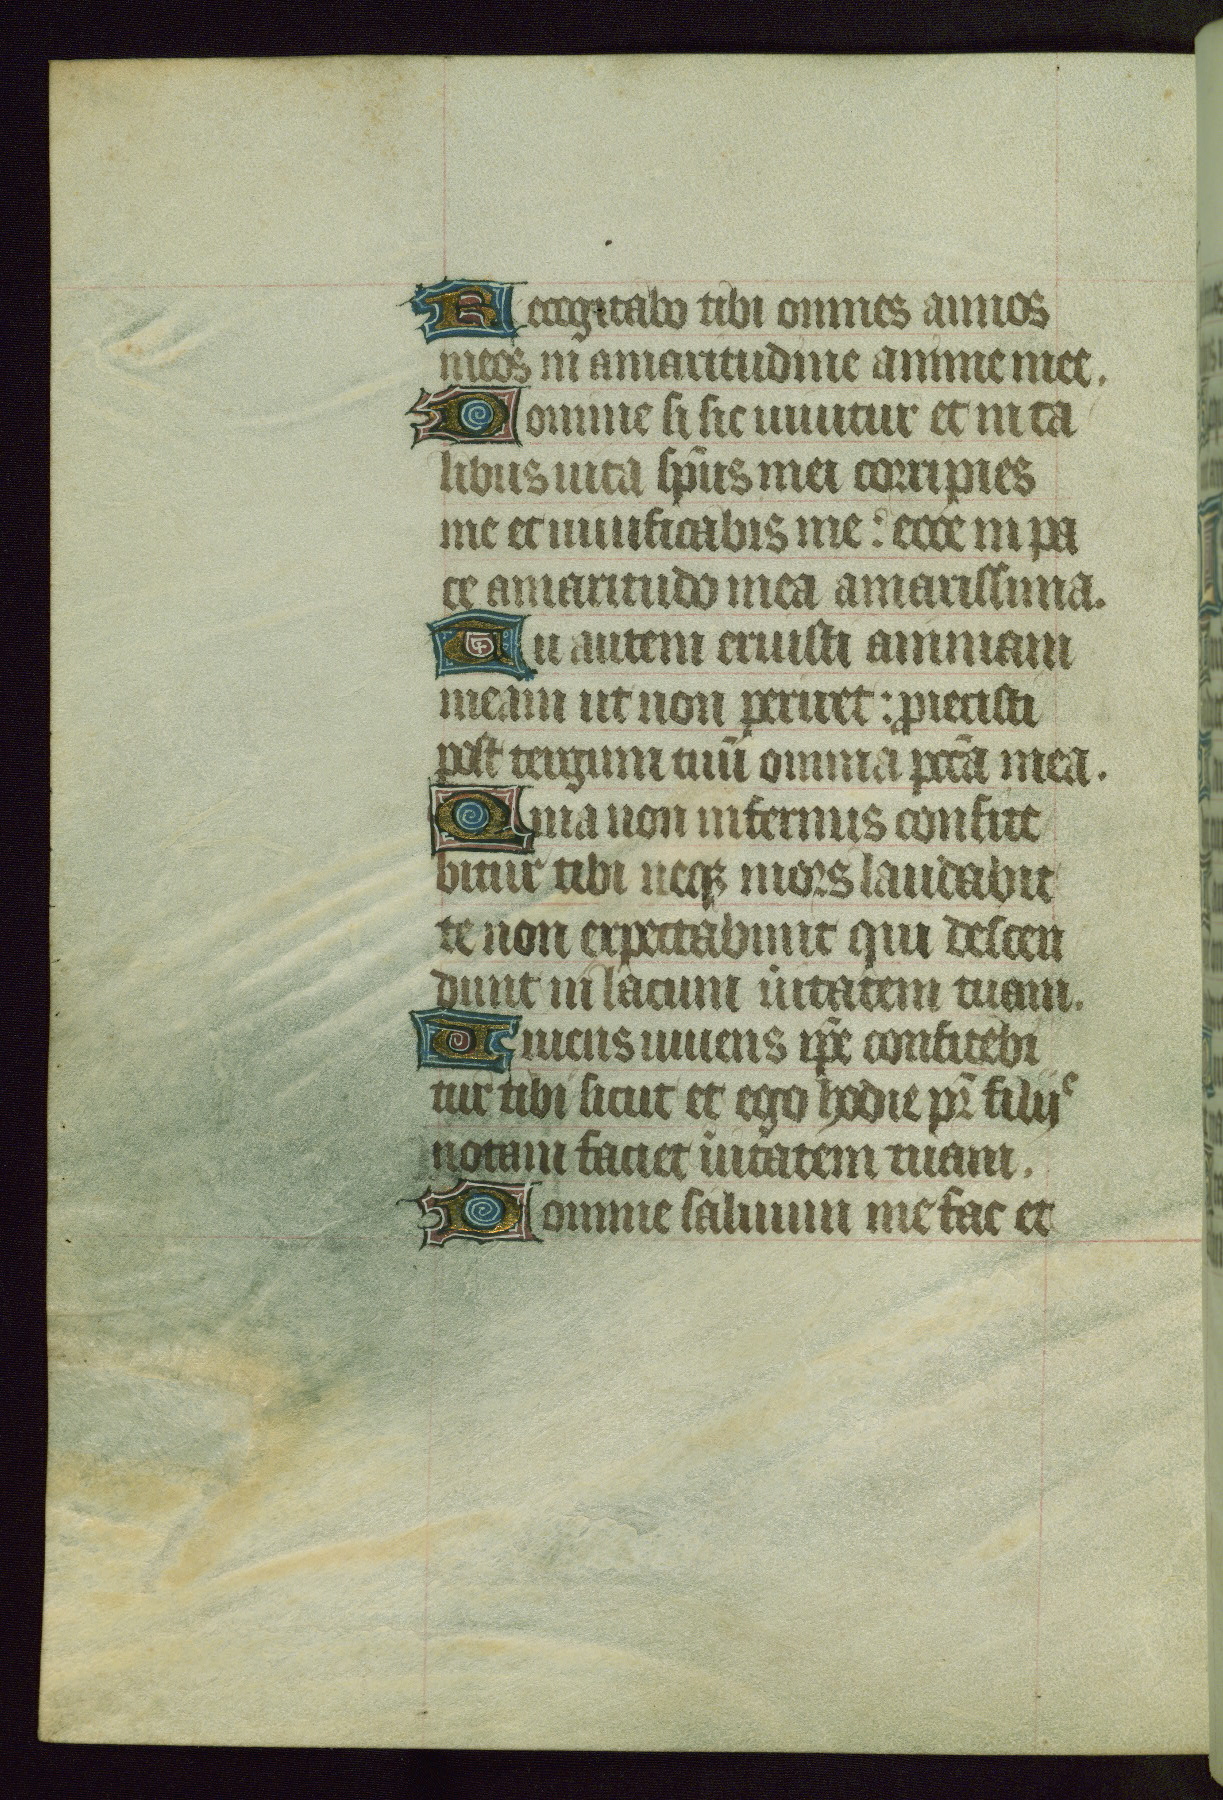 Recogitabo tibi omnes annos
meos in amaritudine anime mee.
Domine si sic uiuitur et in ta
libus uita sp̄us mei corripies
me et uiuificabis me : ecce in pa
ce amaritudo mea amarissima.
Tu autem eruisti animam
meam ut non periret : ꝓiecisti
post tergum tuū omnia pctā mea.
Quia non infernus confite
bitur tibi neqꝫ mors laudabit
te non expectabunt qui descen
dunt in lacum ūitatem tuam.
Uiuens uiuens ip̄e confitebi
tur tibi sicut et ego hodie pr̄ filijˢ
notam faciet ūitatem tuam.
Domine saluum me fac et